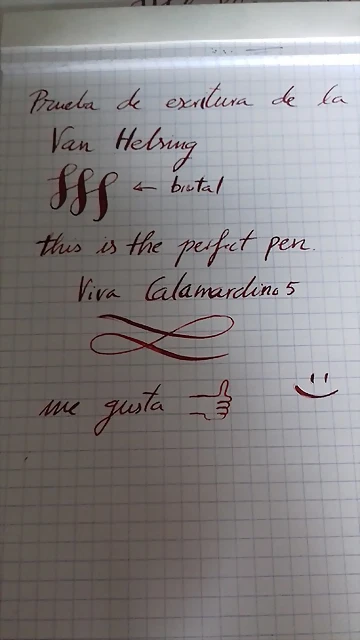 Prueba de escritura de la
Van Helsing
fff ← brutal
this is the perfect pen.
Viva Calamardino 5
me gusta